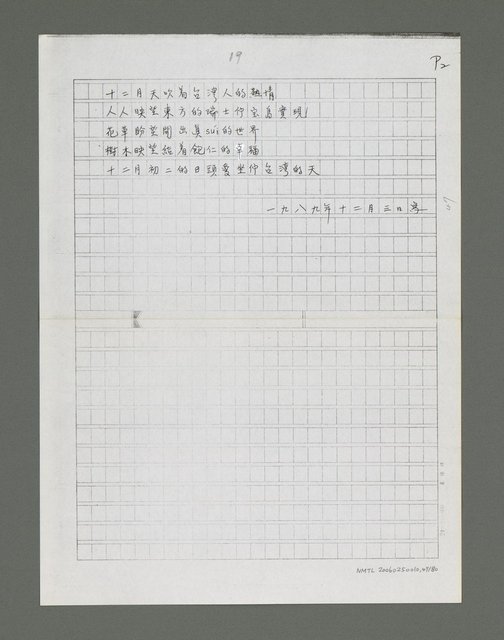 19
P2
十二月天吹為台灣人的熱情
人人映望東方的瑞士佇寶島實現
花草盼望開出真sui的世界
樹木映望結著飽仁的幸福
十二月初二的日頭愛坐佇台灣的天
一九八九年十二月三日寫
NMTL 20060250010,47/80